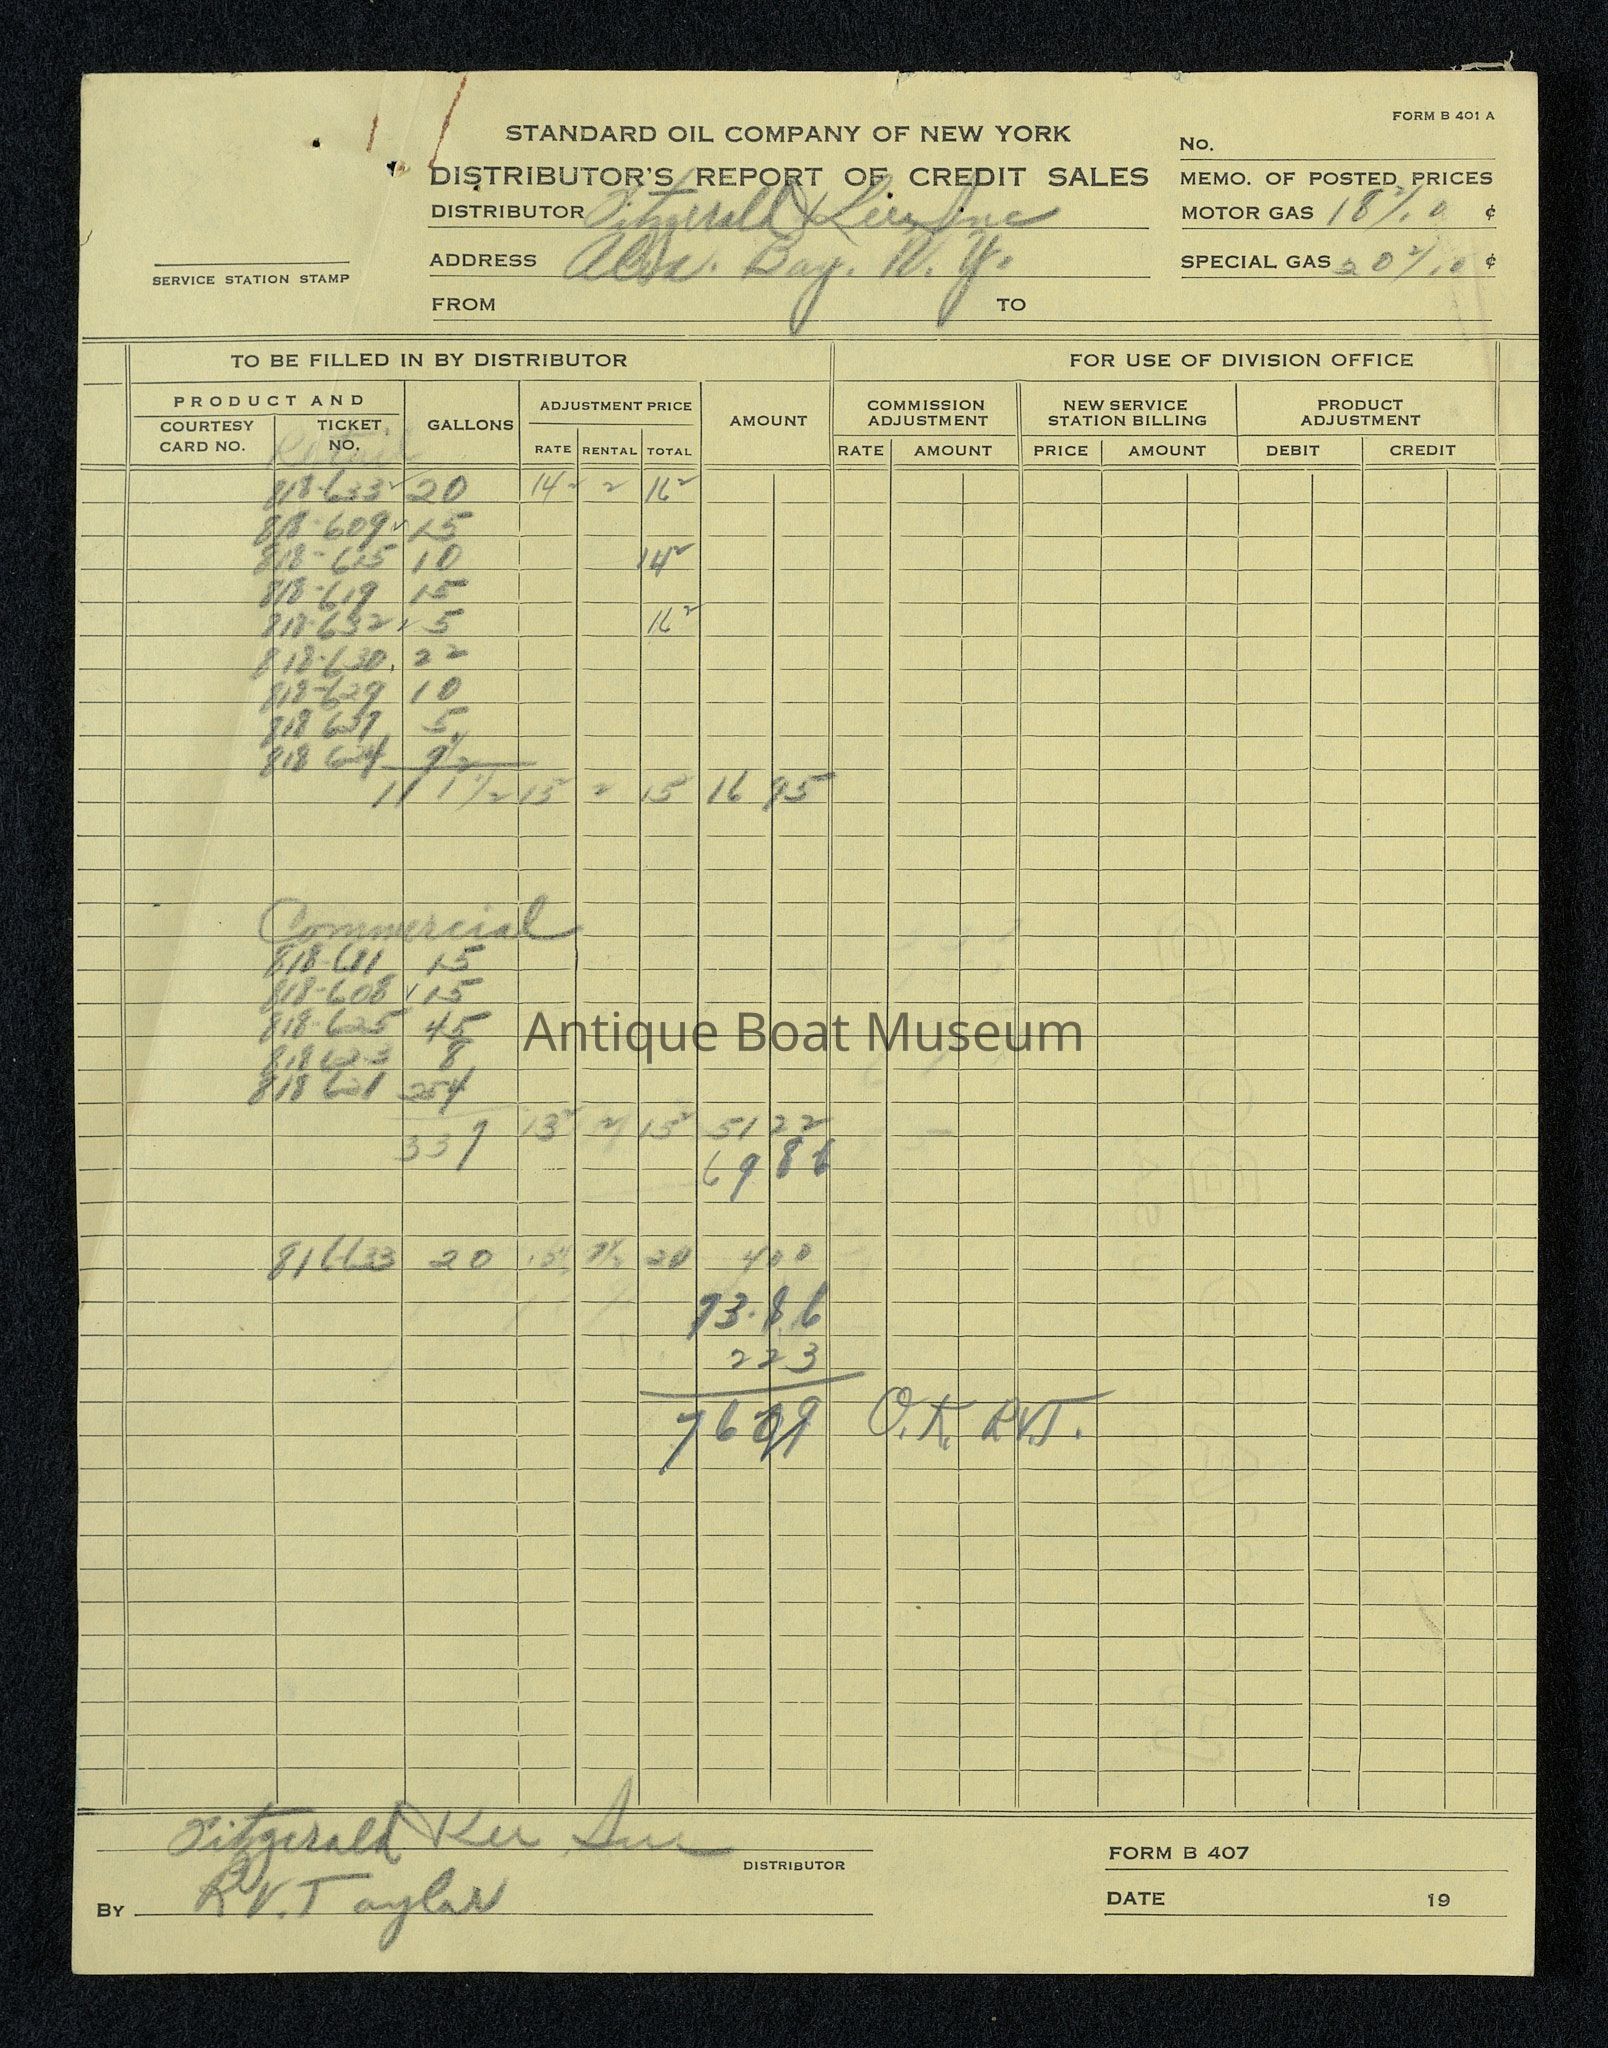 FORM B 401 A
STANDARD OIL COMPANY OF NEW YORK
No.
DISTRIBUTOR'S REPORT OF CREDIT SALES
MEMO. OF POSTED PRICES
DISTRIBUTOR Fitzgerald & Lee Inc
MOTOR GAS 18 2/10 ¢
ADDRESS Alex. Bay. N. Y.
SPECIAL GAS 20 2/10 ¢
SERVICE STATION STAMP
FROM TO
TO BE FILLED IN BY DISTRIBUTOR FOR USE OF DIVISION OFFICE
PRODUCT AND
COURTESY CARD NO. TICKET NO. GALLONS ADJUSTMENT PRICE AMOUNT COMMISSION ADJUSTMENT NEW SERVICE STATION BILLING PRODUCT ADJUSTMENT
RATE RENTAL TOTAL RATE AMOUNT PRICE AMOUNT DEBIT CREDIT
Retail
818-633 20 14 2 2 16 2
818-609 15
818-615 10 14 2
818-619 15
818-632 5 16 2
818-630 22
818-629 10
818 637 5
818 624 9 1/2
111 1/2 15 2 2 15 16 95
Commercial
818-611 15
818-608 15
818-625 45
818 623 8
818 621 254
337 13 2 2 15 2 51 22
69 86
816633 20 20 400
73.86
223
7609 O.K. RVT.
Antique Boat Museum
Fitzgerald & Lee Inc
DISTRIBUTOR
FORM B 407
BY R.V. Taylor
DATE 19